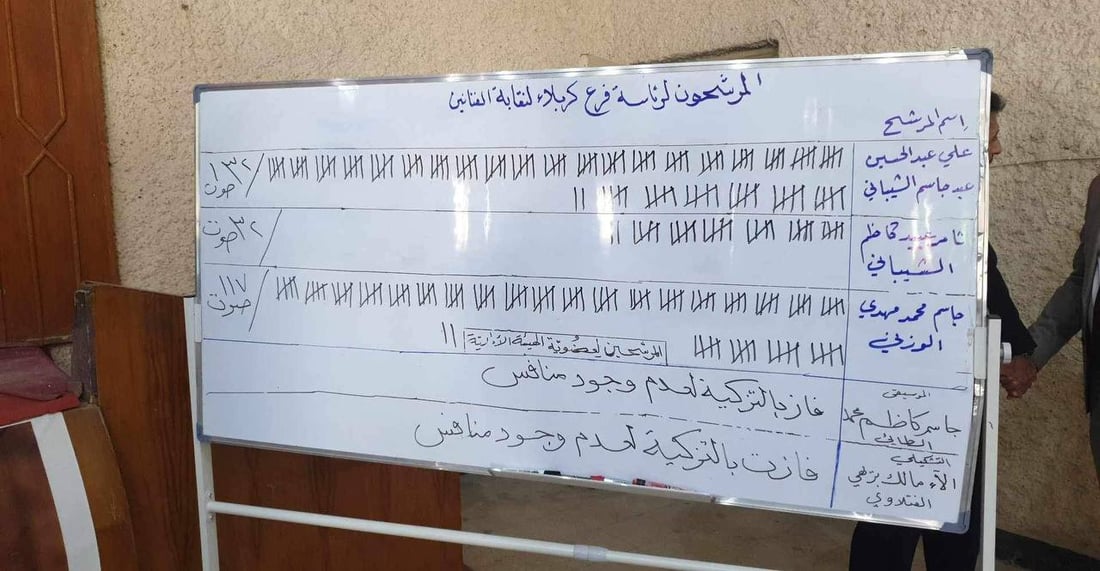 المرشحون لرئاسة فرع كربلاء لنقابة الفنانين
اسم المرشح
علي عبد الحسين
عبد جاسم الشيباني
١٣٢ صوت
ثامر عبيد كاظم
الشيباني
٣٢ صوت
جاسم محمد مهدي
الوزني
١١٧ صوت
المرشحين لعضوية الهيئة الادارية
الموسيقى
جاسم كاظم محمد
الطائي
فاز بالتزكية لعدم وجود منافس
التشكيلي
الآء مالك برهي
الفتلاوي
فازت بالتزكية لعدم وجود منافس